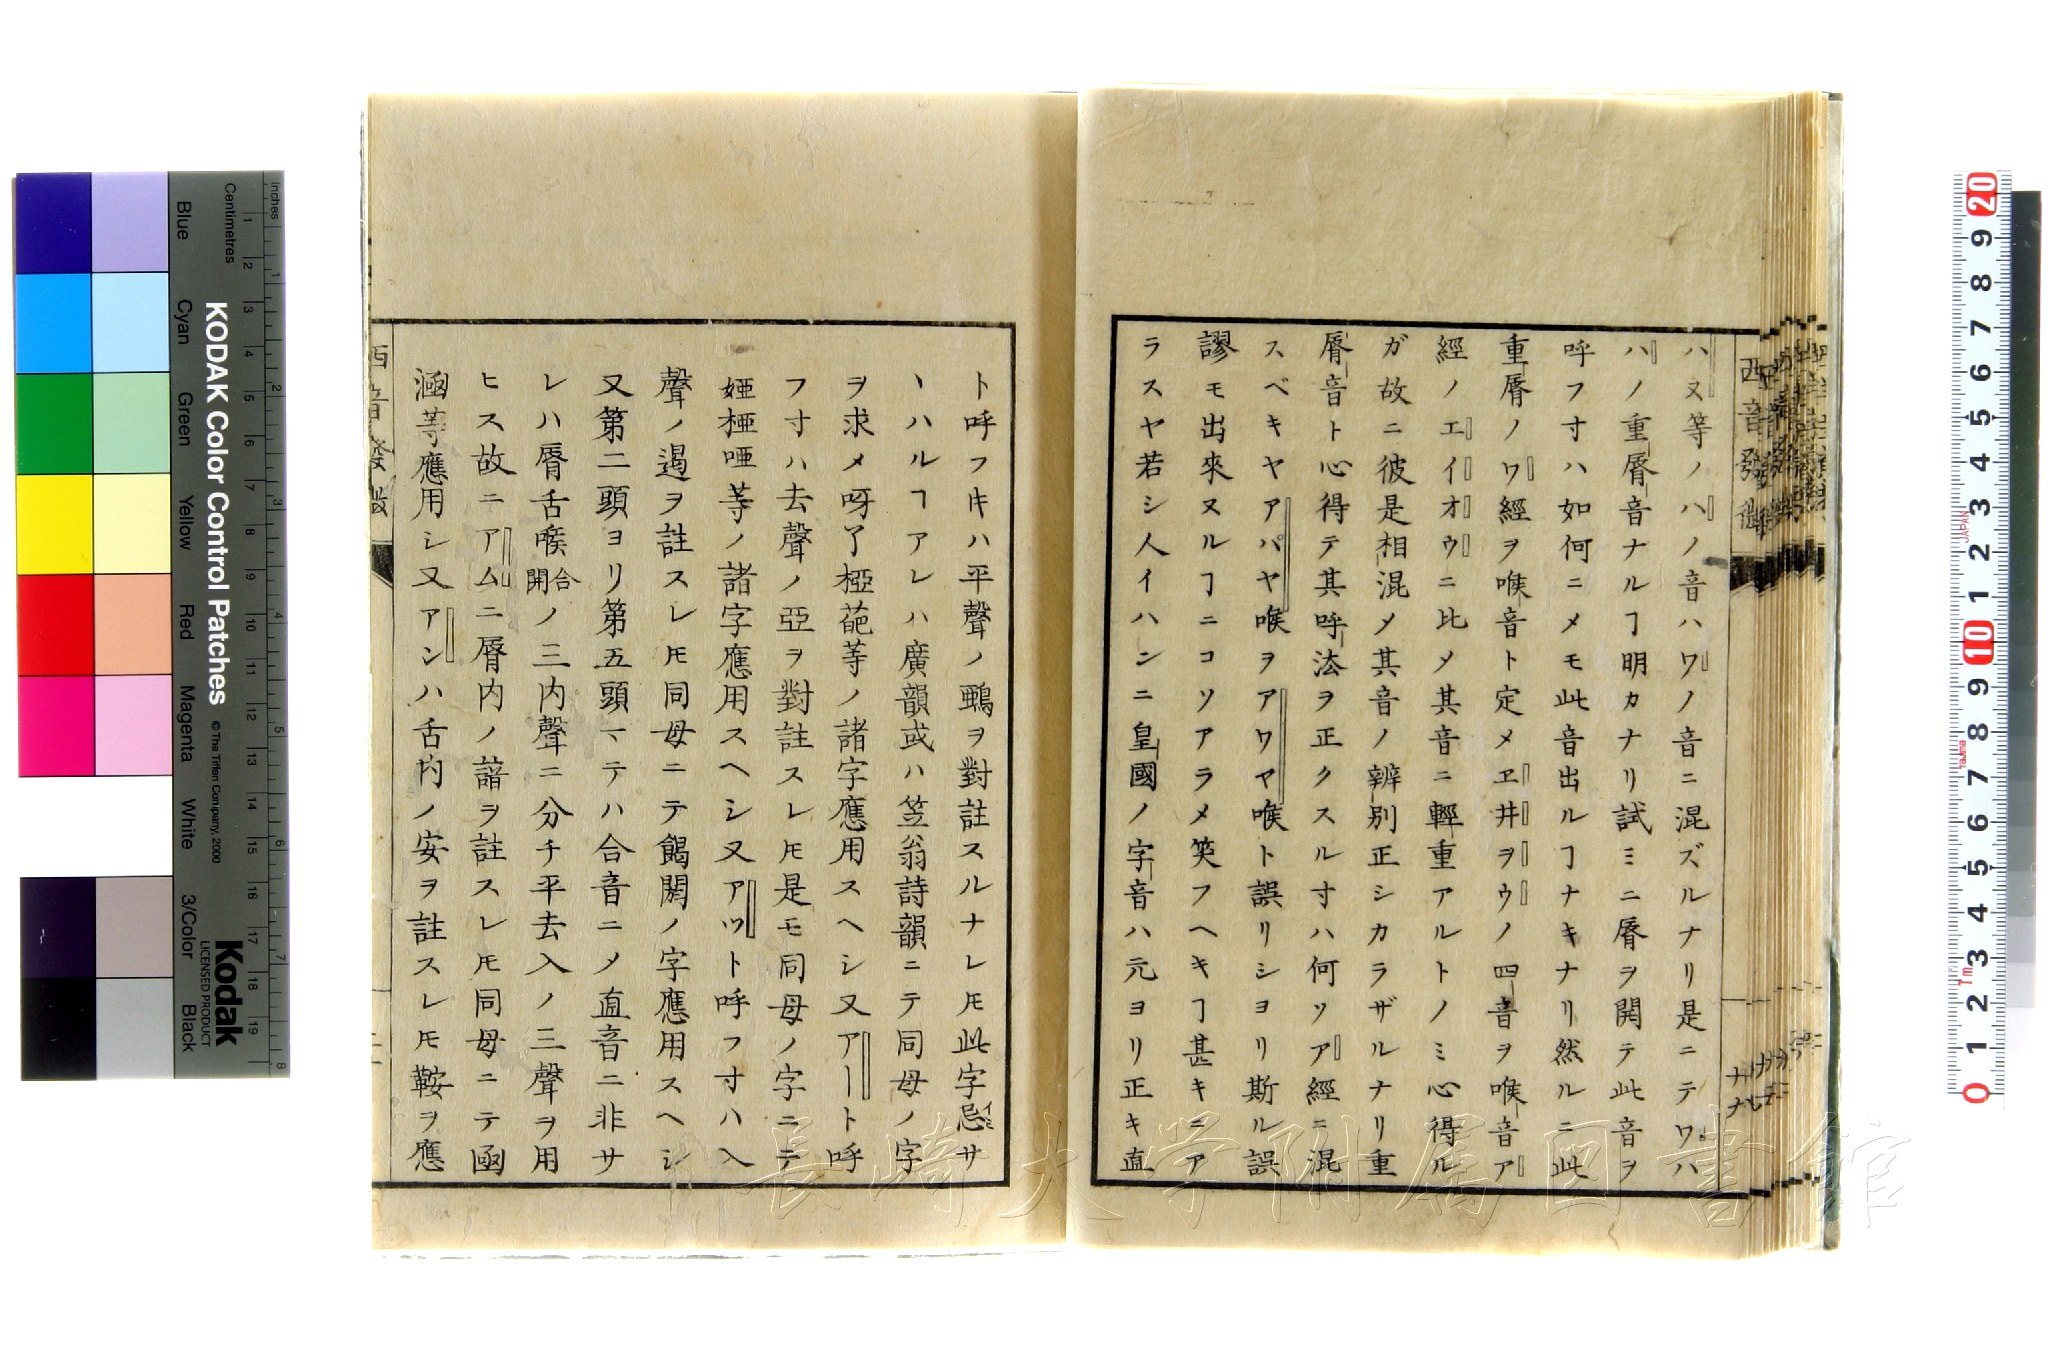 ハ又等ノハノ音ハワノ音ニ混ズルナリ是ニテワハ
ハノ重脣音ナルヿ明カナリ試ミニ脣ヲ開テ此音ヲ
呼フ寸ハ如何ニメモ此音出ルヿナキナリ然ルニ此
重脣ノワ經ヲ喉音ト定メヱ井ヲウノ四音ヲ喉音ア
經ノエイオウニ比メ其音ニ輕重アルトノミ心得ル
ガ故ニ彼是相混メ其音ノ辨別正シカラザルナリ重
脣音ト心得テ其呼法ヲ正クスル寸ハ何ソア經ニ混
スベキヤアパヤ喉ヲアワヤ喉ト誤リシヨリ斯ル誤
謬モ出來ヌルヿニコソアラメ笑フヘキヿ甚キニア
ラスヤ若シ人イハンニ皇國ノ字音ハ元ヨリ正キ直
西音發微
ト呼フキハ平聲ノ鴉ヲ對註スルナレ𪜈此字忌サ
イミ
ヽハルヿアレハ廣韻或ハ笠翁詩韻ニテ同母ノ字
ヲ求メ呀丫椏葩等ノ諸字應用スヘシ又アート呼
フ寸ハ去聲ノ亞ヲ對註スレ𪜈是モ同母ノ字ニテ
婭椏啞等ノ諸字應用スヘシ又アット呼フ寸ハ入
聲ノ遏ヲ註スレ𪜈同母ニテ餲閼ノ字應用スヘシ
又第二頭ヨリ第五頭マテハ合音ニメ直音ニ非サ
レハ脣舌喉合開ノ三内聲ニ分チ平去入ノ三聲ヲ用
ヒス故ニアムニ脣内ノ諳ヲ註スレ𪜈同母ニテ函
涵等應用シ又アンハ舌内ノ安ヲ註スレ𪜈鞍ヲ應
西音發微
長崎大学附属図書館
KODAK Color Control Patches
© The Tiffen Company, 2000
Kodak
LICENSED PRODUCT
Inches
Centimetres
Blue
Cyan
Green
Yellow
Red
Magenta
White
3/Color
Black
JAPAN